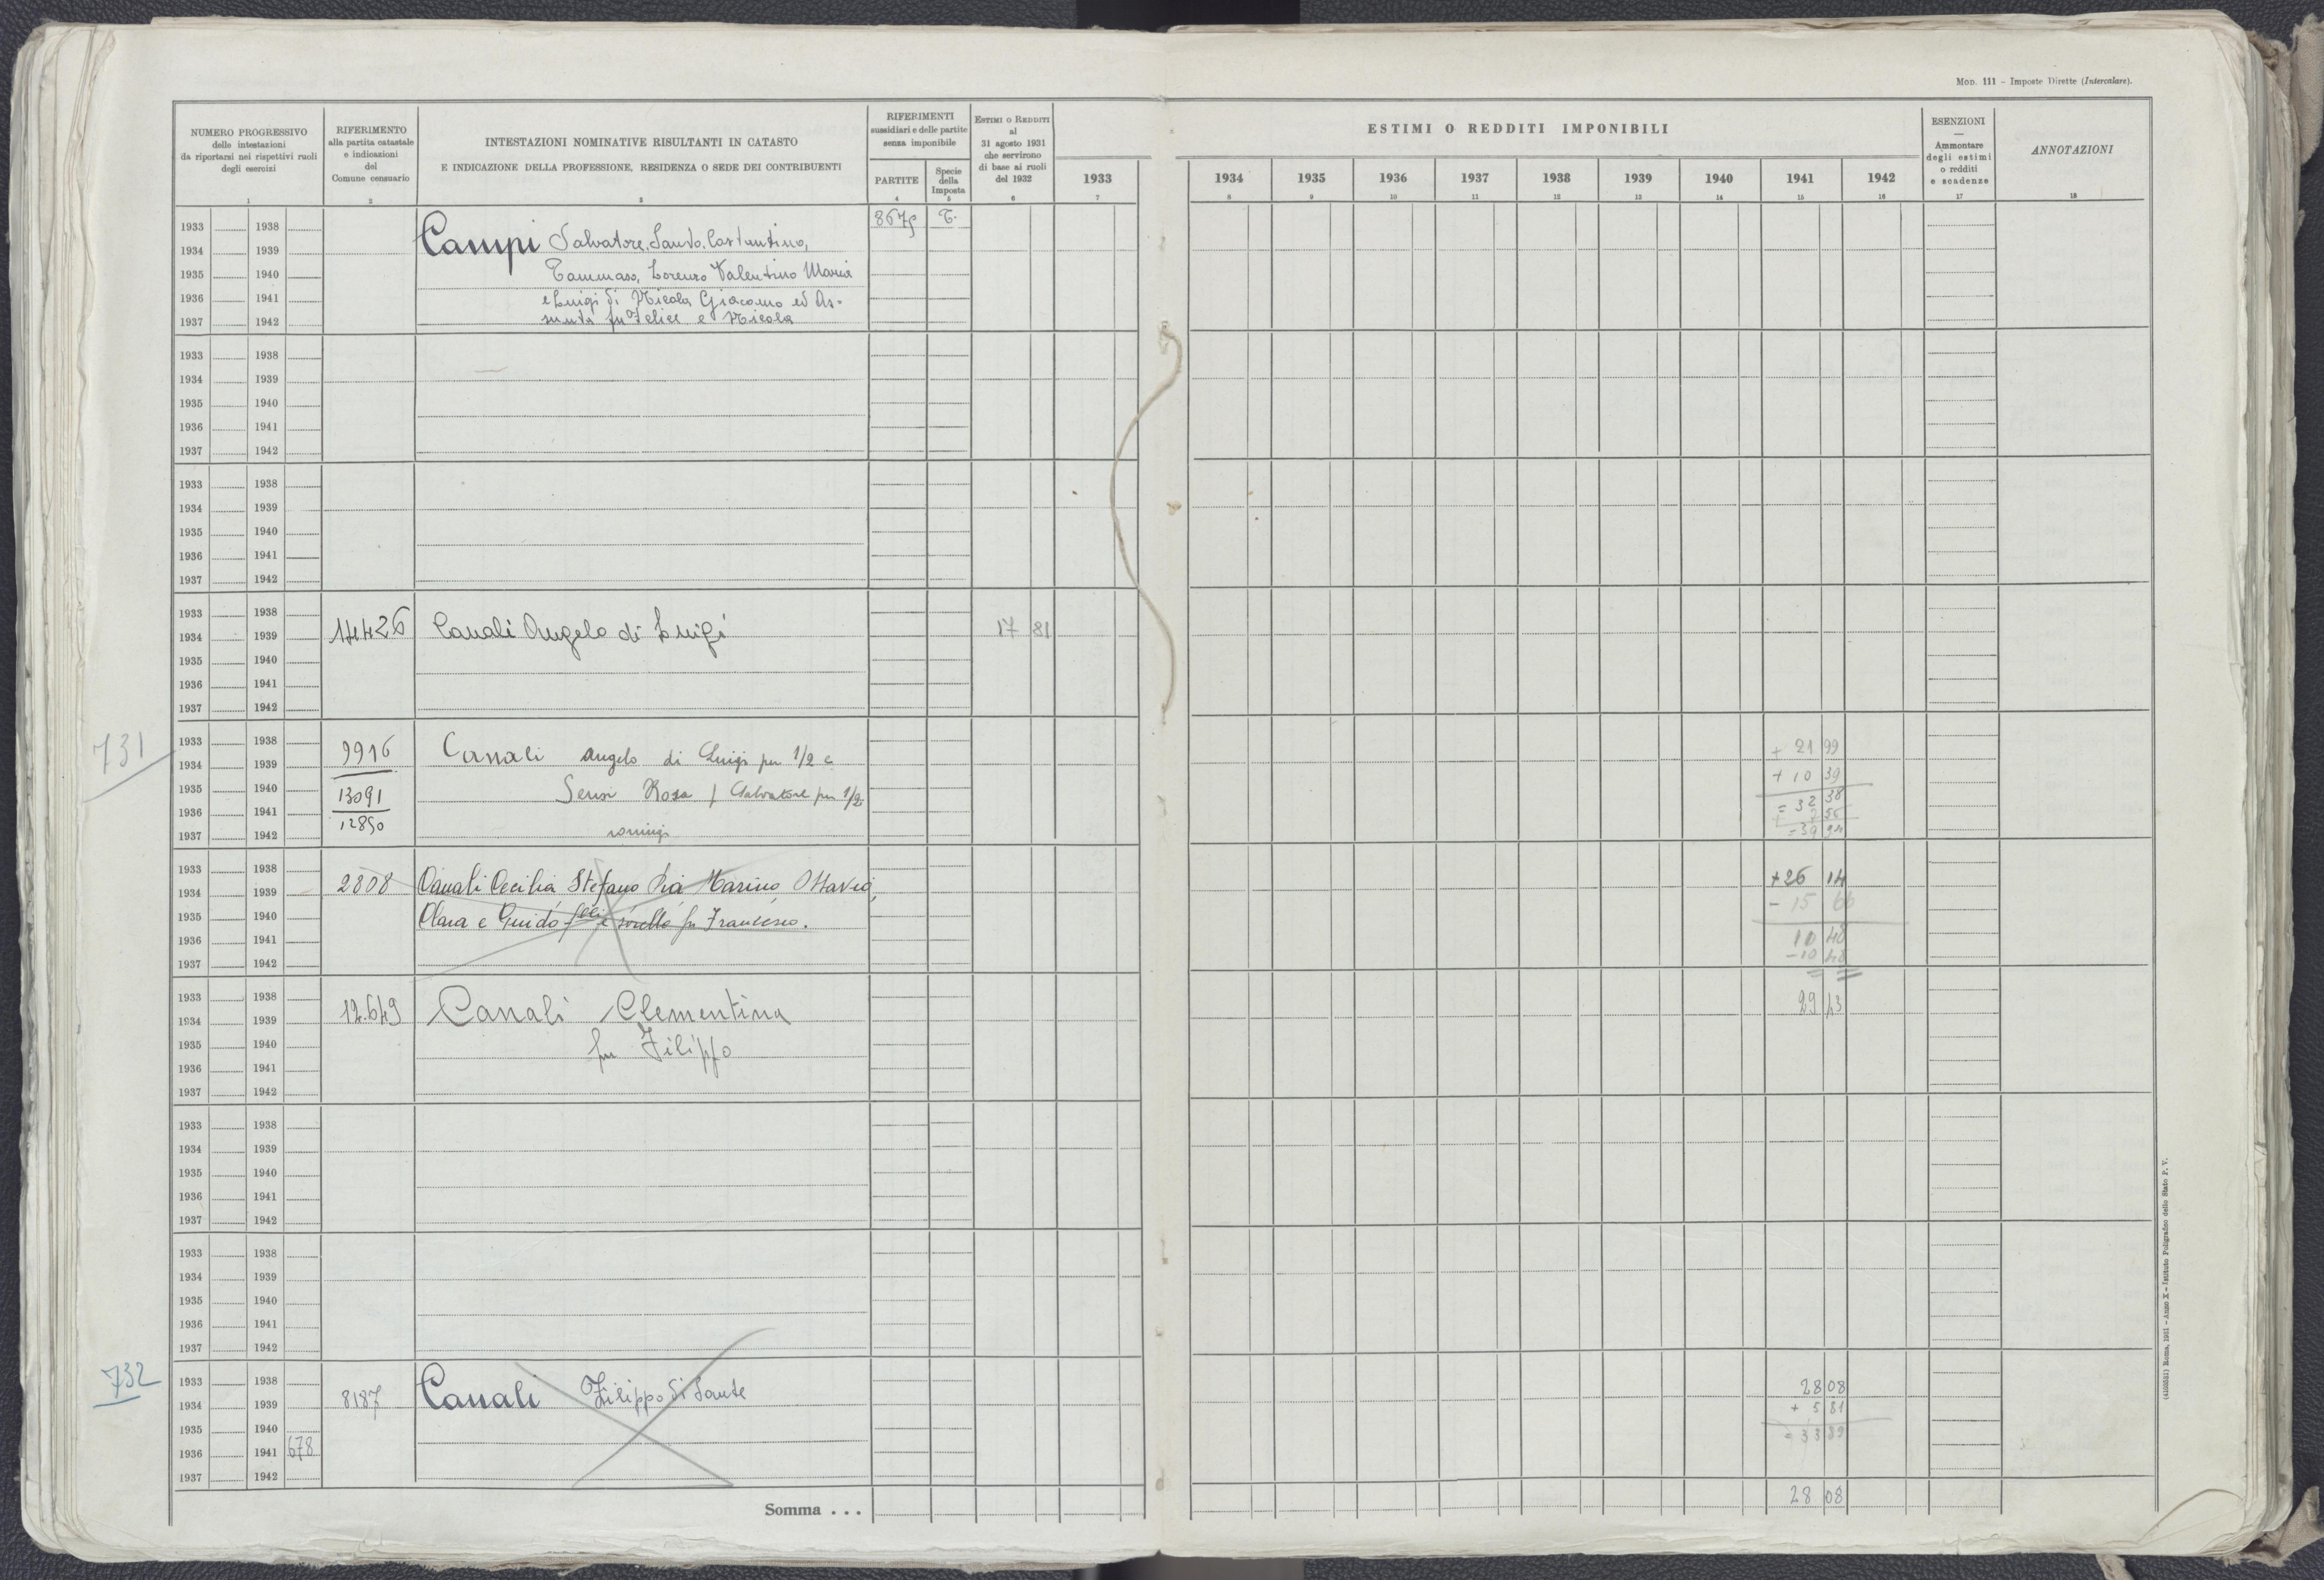 Mod. 111 - Imposte Dirette (Intercalare).
NUMERO PROGRESSIVO
delle intestazioni
da riportarsi nei rispettivi ruoli
degli esercizi
1
RIFERIMENTO
alla partita catastale
e indicazioni
del
Comune censuario
2
INTESTAZIONI NOMINATIVE RISULTANTI IN CATASTO
E INDICAZIONE DELLA PROFESSIONE, RESIDENZA O SEDE DEI CONTRIBUENTI
3
RIFERIMENTI
sussidiari e delle partite
senza imponibile
PARTITE
4
Specie
della
Imposta
5
ESTIMI O REDDITI
al
31 agosto 1931
che servirono
di base ai ruoli
del 1932
6
ESTIMI O REDDITI IMPONIBILI
1933 1934 1935 1936 1937 1938 1939 1940 1941 1942
7 8 9 10 11 12 13 14 15 16
ESENZIONI
—
Ammontare
degli estimi
o redditi
e scadenze
17
ANNOTAZIONI
18
1933 1938
1934 1939
1935 1940
1936 1941
1937 1942
Campi Salvatore, Santo, Costantino,
Tommaso, Lorenzo Valentino Maria
e Luigi di Nicola, Giacomo ed As-
sunta fu Felice e Nicola
8675 T.
1933 1938
1934 1939
1935 1940
1936 1941
1937 1942
1933 1938
1934 1939
1935 1940
1936 1941
1937 1942
1933 1938
1934 1939
1935 1940
1936 1941
1937 1942
14426 Canali Angelo di Luigi 17 81
731
1933 1938
1934 1939
1935 1940
1936 1941
1937 1942
9916 Canali Angelo di Luigi per 1/2 e
13091 Rosa f Salvatore per 1/2
12850 coniugi
+ 21 99
+ 10 39
= 32 38
+ 7 56
= 39 94
1933 1938
1934 1939
1935 1940
1936 1941
1937 1942
2808 Canali Cecilia Stefano Marino Ottavio,
Clara e Guido f.lli e sorelle fu Francesco.
+ 26 14
- 15 66
10 48
- 10 48
1933 1938
1934 1939
1935 1940
1936 1941
1937 1942
12.649 Canali Clementina
fu Filippo
29 43
1933 1938
1934 1939
1935 1940
1936 1941
1937 1942
1933 1938
1934 1939
1935 1940
1936 1941
1937 1942
732
1933 1938
1934 1939
1935 1940
1936 1941 678
1937 1942
8187 Canali Filippo di Sante
28 08
+ 5 81
= 33 89
Somma . . .
28 08
(4103531) Roma, 1931 - Anno X - Istituto Poligrafico dello Stato P. V.